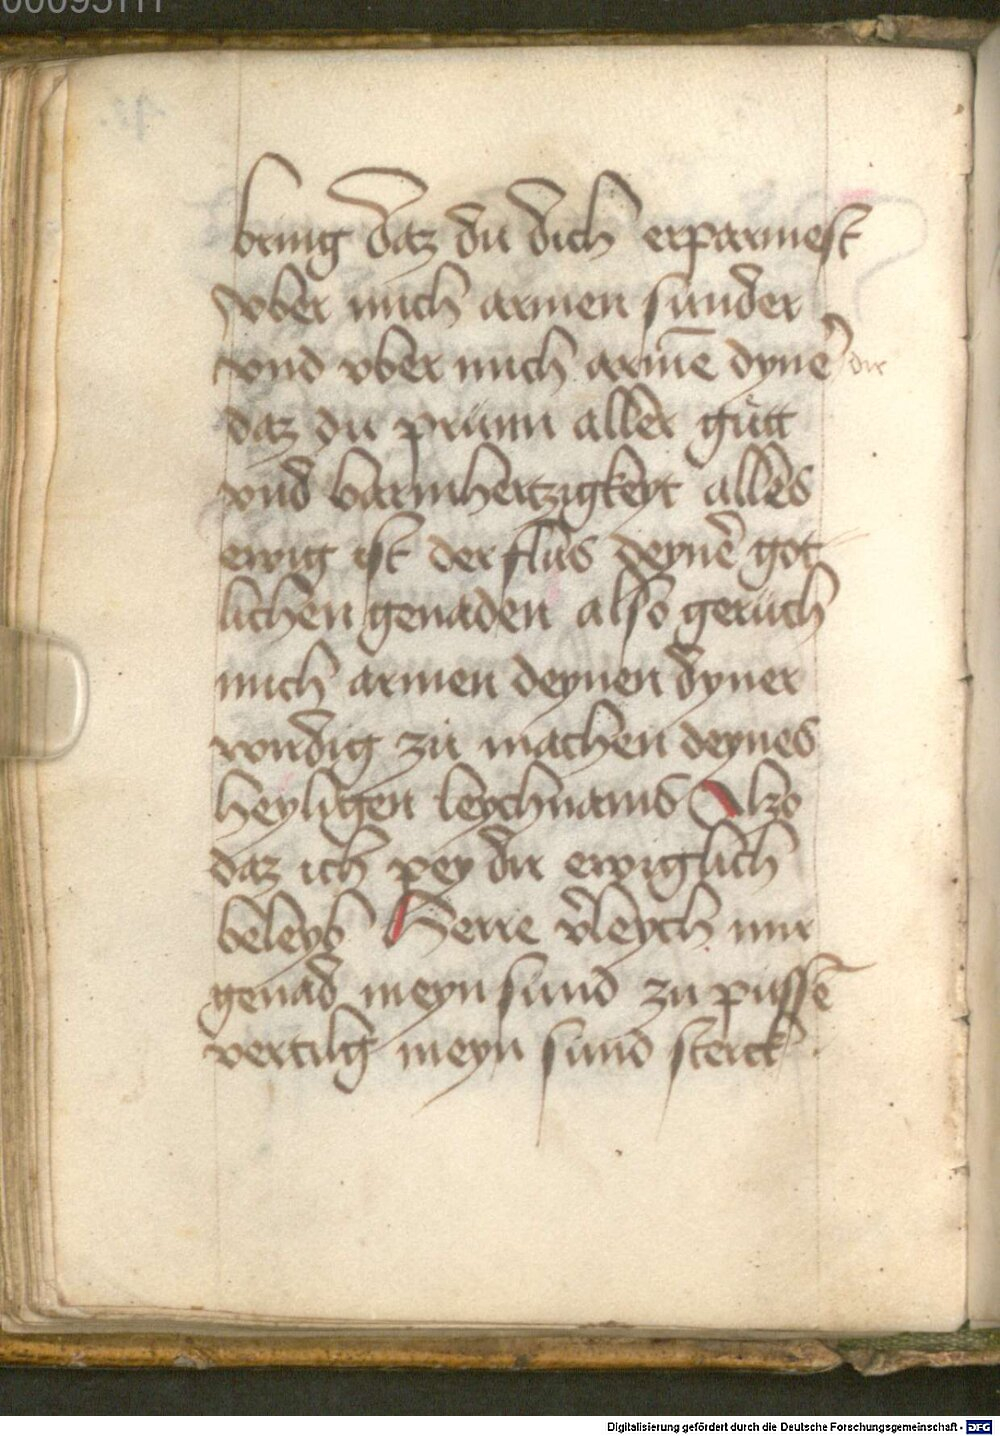 bring daz du dich erparmest
vber mich armen sunder
vnd vber mich armē dynē dir
daz du prunn aller gütt
vnd barmhertzigkeyt alles
ewig ist der flus deynē got
lichen genaden also geruch
mich armen deynen dyner
wirdig zu machen deynes
heyligen leychnams Alzo
daz ich pey dir ewiglich
beleyb Herre v̄leych mir
genad meyn sund zu pussē
vertilg meyn sund sterck
Digitalisierung gefördert durch die Deutsche Forschungsgemeinschaft - DFG